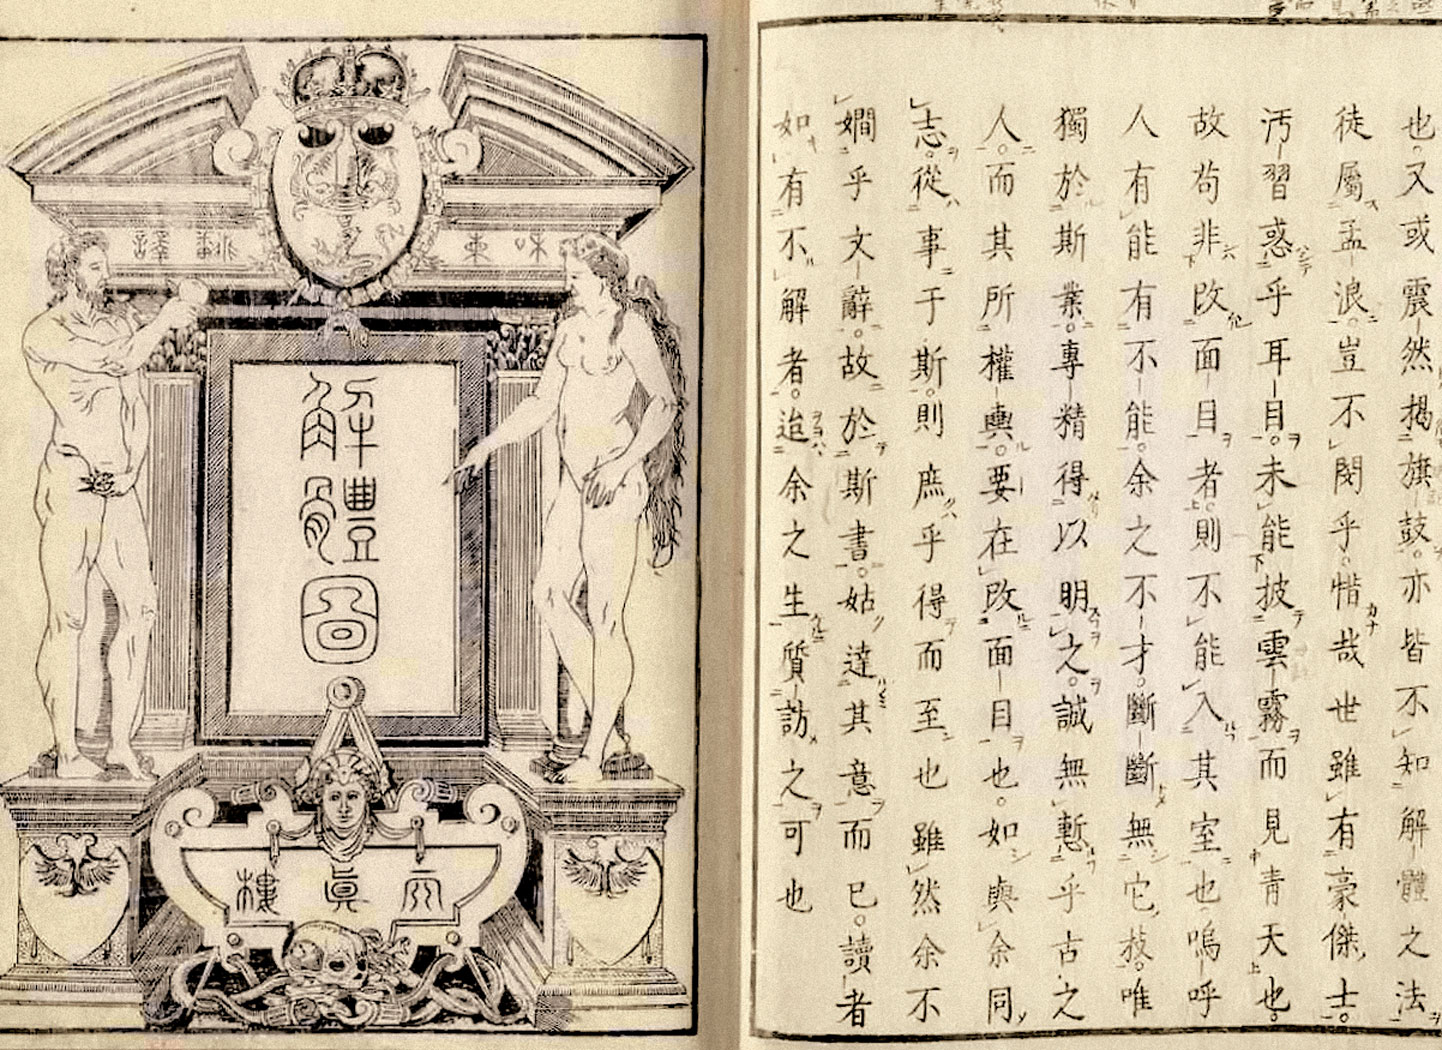 也。又或震然揭旗鼓。亦皆不知解體之法
徒屬孟浪。豈不閔乎。惜哉世雖有豪傑士。
汚習惑乎耳目。未能披雲霧而見青天也。
故苟非改面目者。則不能入其室也嗚呼
人有能有不能。余之不才。斷斷無它技。唯
獨於斯業。專精得以明之。誠無慙乎古之
人。而其所權輿。要在改面目也。如與余同
志。從事于斯。則庶乎得而至也雖然余不
嫺乎文辭。故於斯書。姑達其意而已。讀者
如有不解者。迨余之生質訪之可也
東翻譯
解體圖
天眞樓